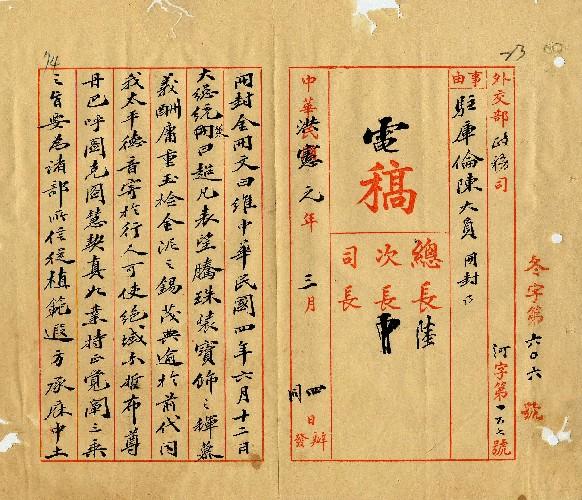 冬字第六〇六號
外交部政務司
河字第一六七號
事由
駐庫倫陳大員 冊封事
電稿
總長陸
次長
司長
中華洪憲元年三月四日辦
同發
冊封全冊文曰維中華民國四年六月十二日
大總統策冊曰超凡表望騰珠裝寶飾之輝慕
義酬庸重玉檢金泥之錫茂典逾於前代同
我太平德音寄於行人可使絕域爾哲布尊
丹巴呼圖克圖慧契真如業時正覺闡三乘
之旨要為諸部所信從植範遐方承庥中土